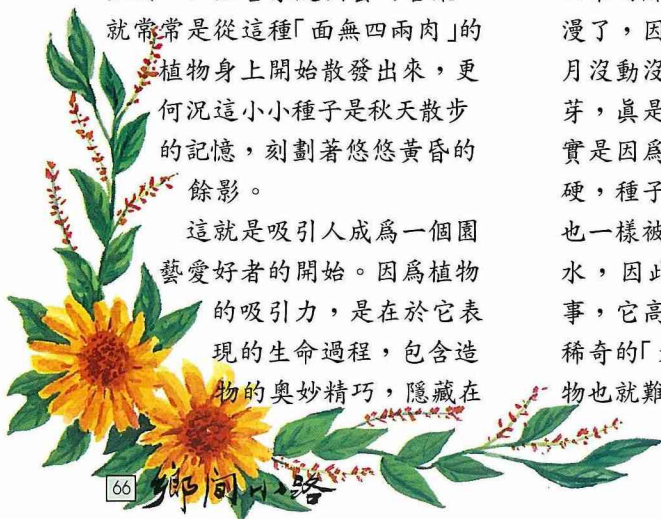 就常常是從這種「面無四兩肉」的
植物身上開始散發出來，更
何況這小小種子是秋天散步
的記憶，刻劃著悠悠黃昏的
餘影。
這就是吸引人成爲一個園
藝愛好者的開始。因爲植物
的吸引力，是在於它表
現的生命過程，包含造
物的奧妙精巧，隱藏在
漫了，因
月沒動沒
芽，眞是
實是因爲
硬，種子
也一樣被
水，因此
事，它高
稀奇的「
物也就難
66 鄉間小路